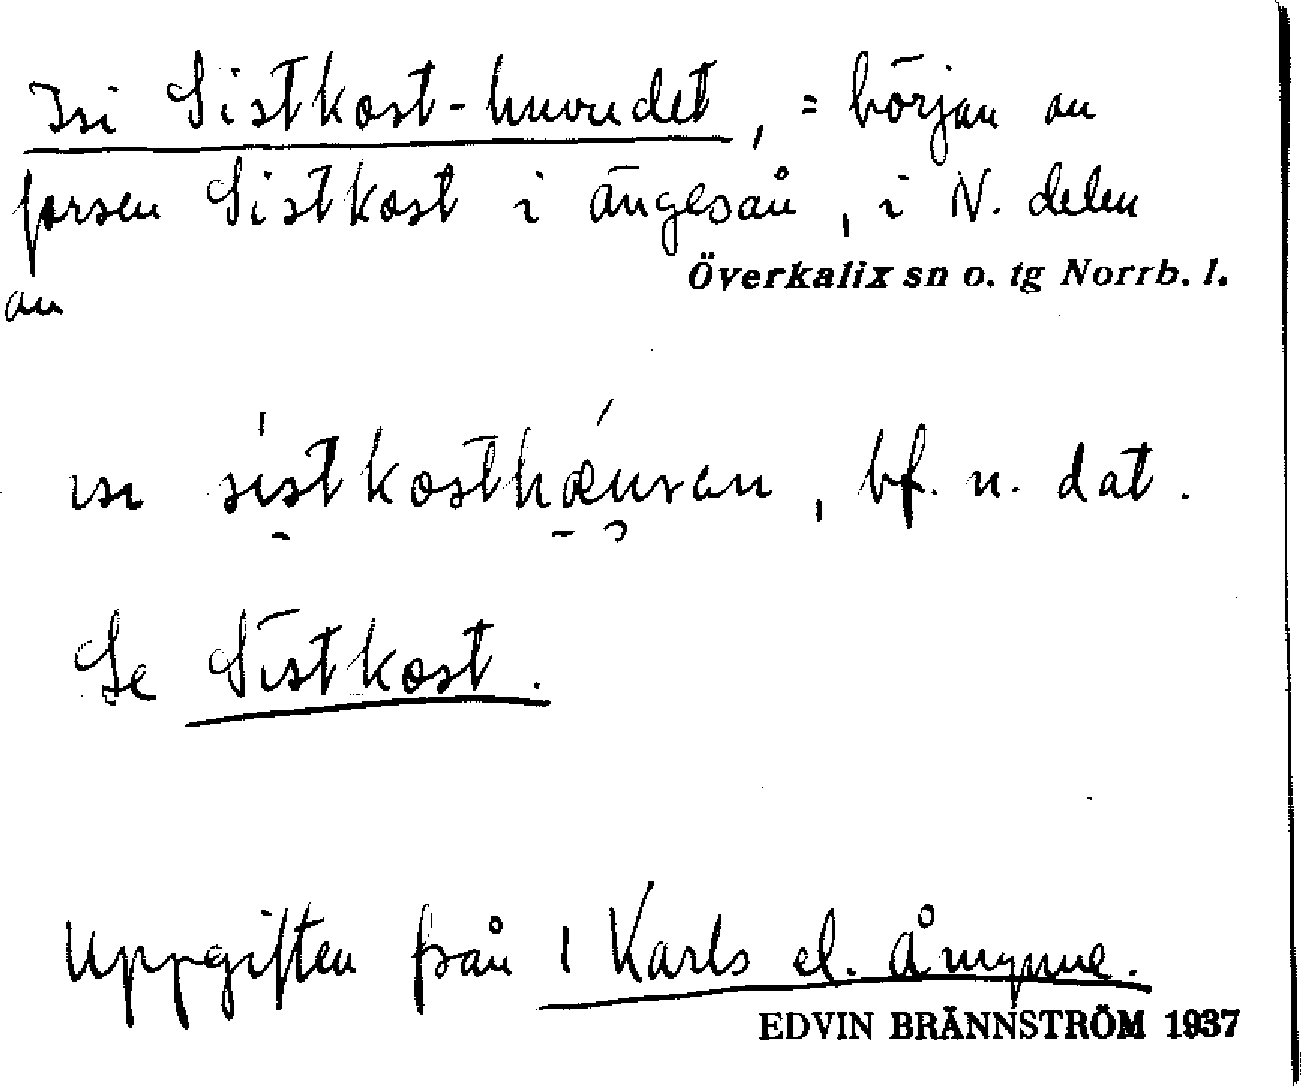 Isi Sistkost-huvudet, = början av
forsen Sistkost i ängesån, i N. delen
Överkalix sn o. tg Norrb. l.
av
sistkosthæuvan, bf. n. dat.
Se Sistkost.
Uppgiften från 1 Karls el. Åmynne.
EDVIN BRÄNNSTRÖM 1937